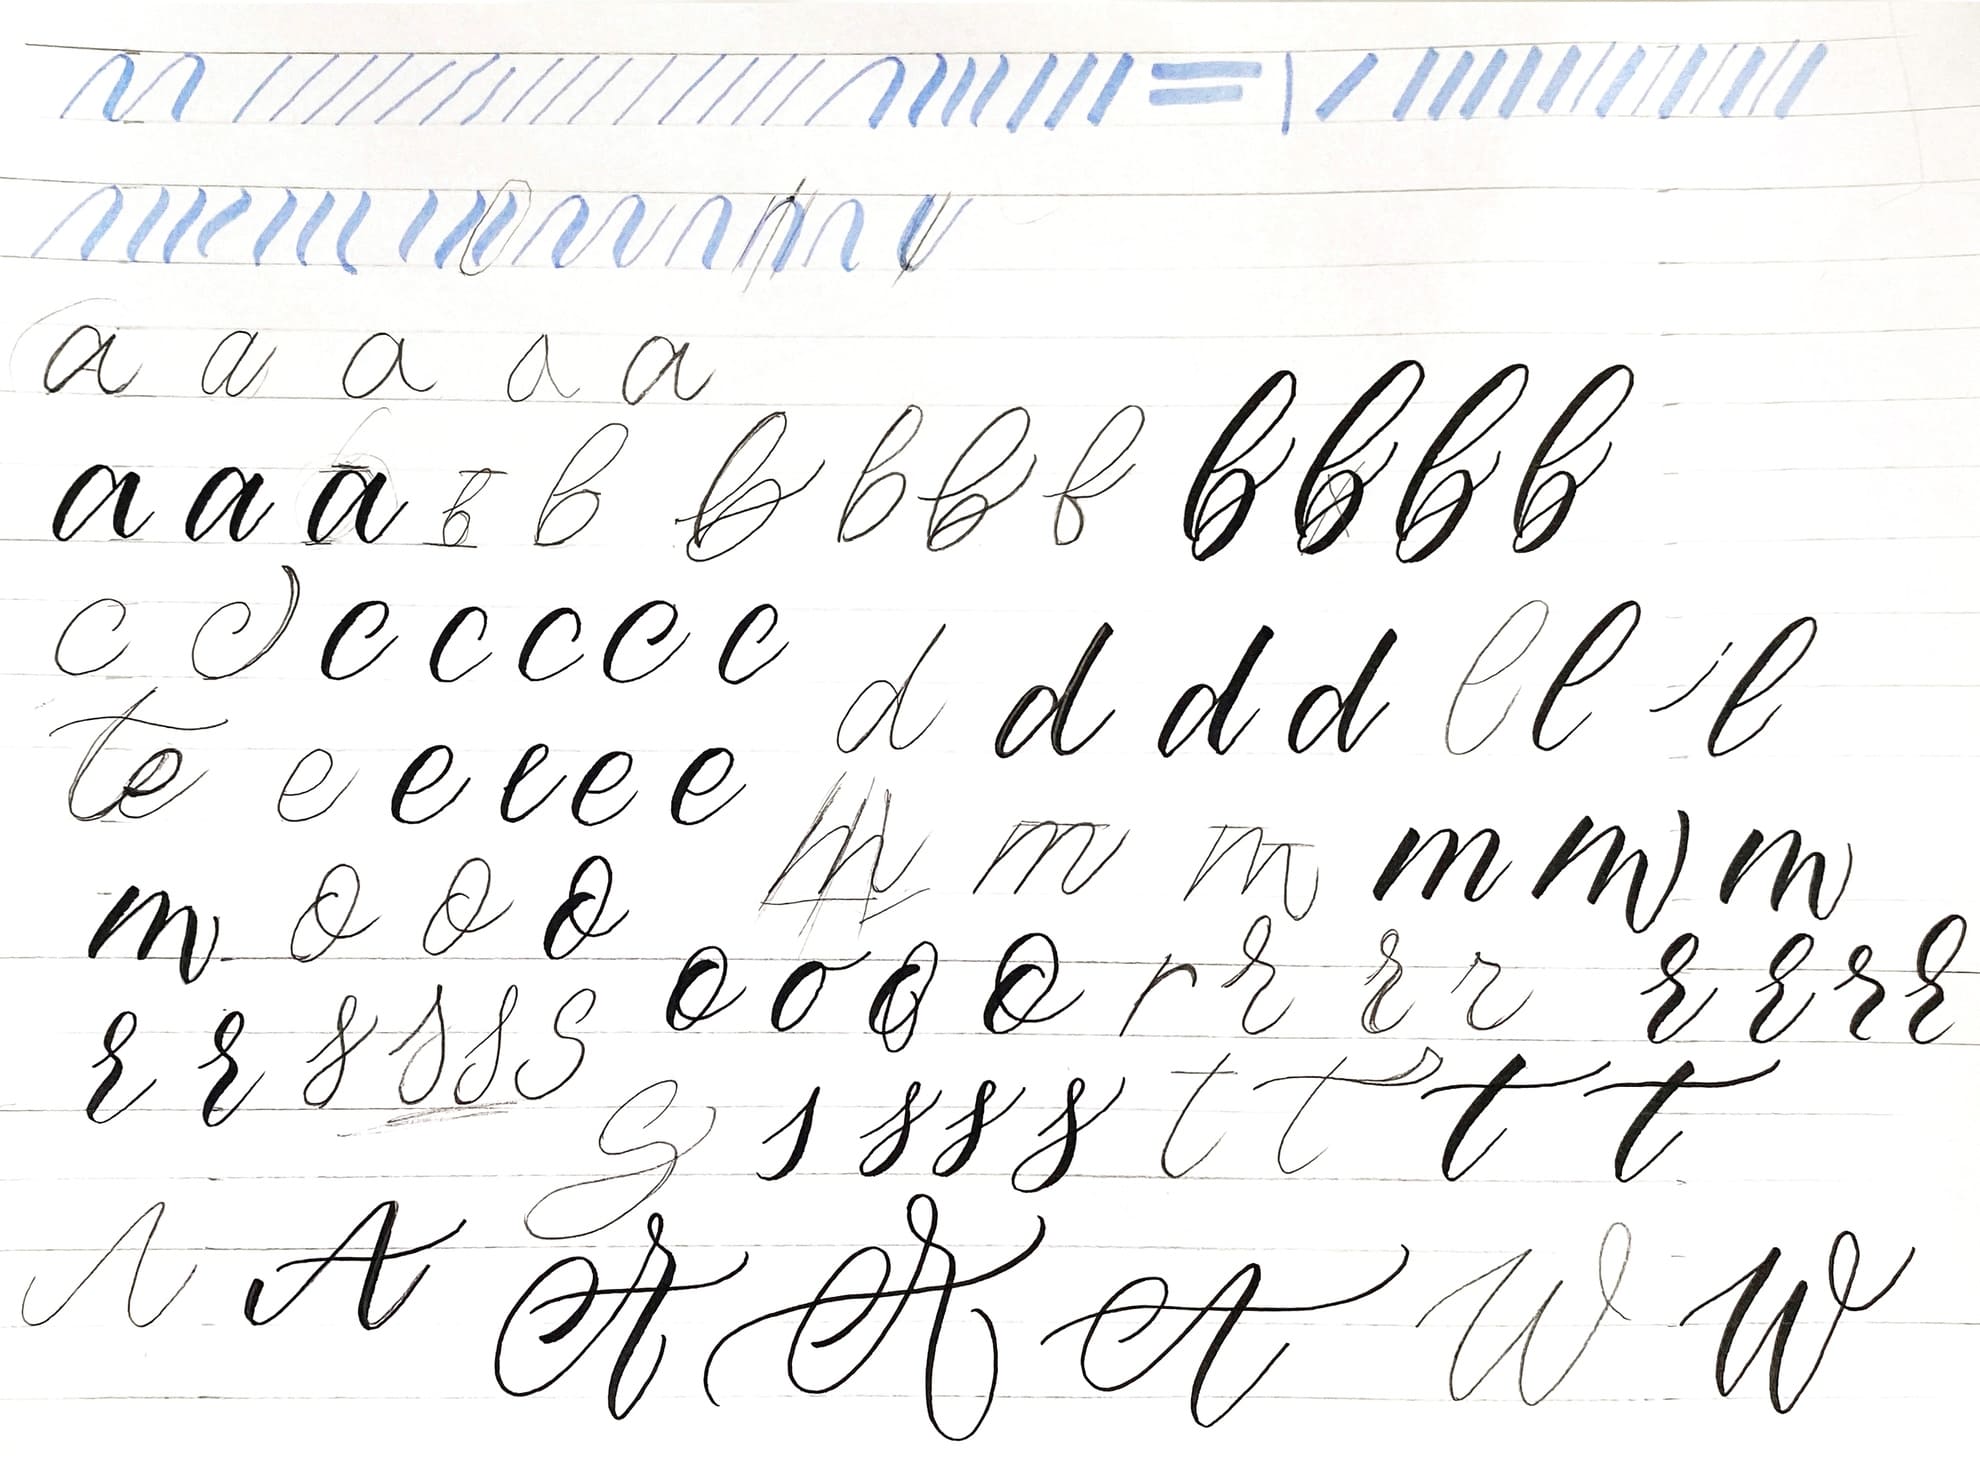 a a a a a
a a a b b b b b b b b b b b
c c c c c c c d d d d l l l
te e e e e e m m m m m m
m o o o o o o o r r r r r r r r
r r s s s s s s s s s t t t t
A A A A A W W